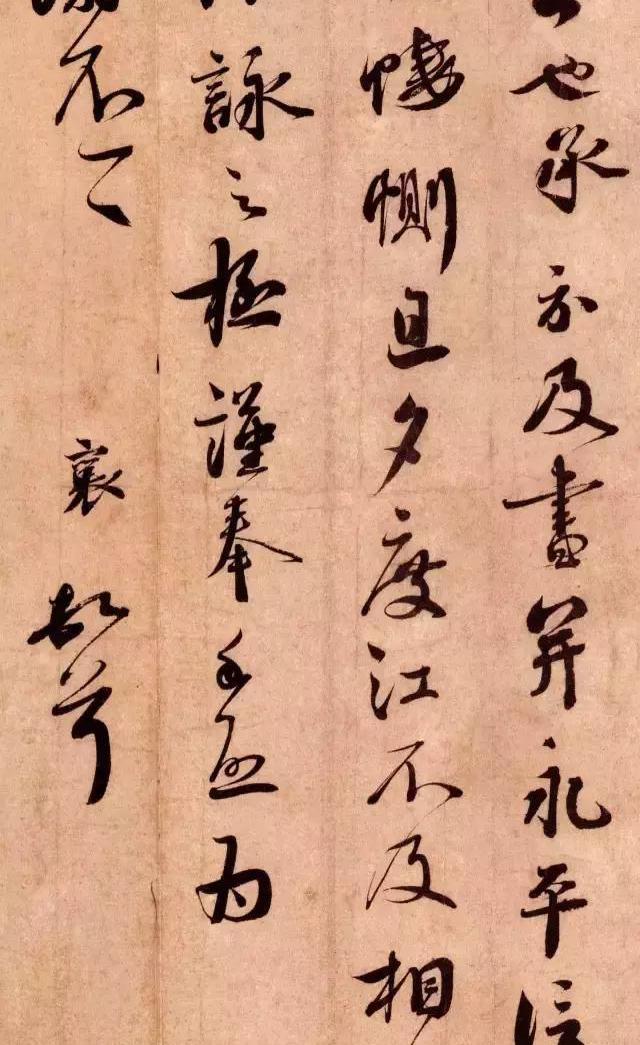 也承示及書并永平信
悽惻旦夕度江不及相
詠之極謹奉手啓為
謝不一一 襄 頓首